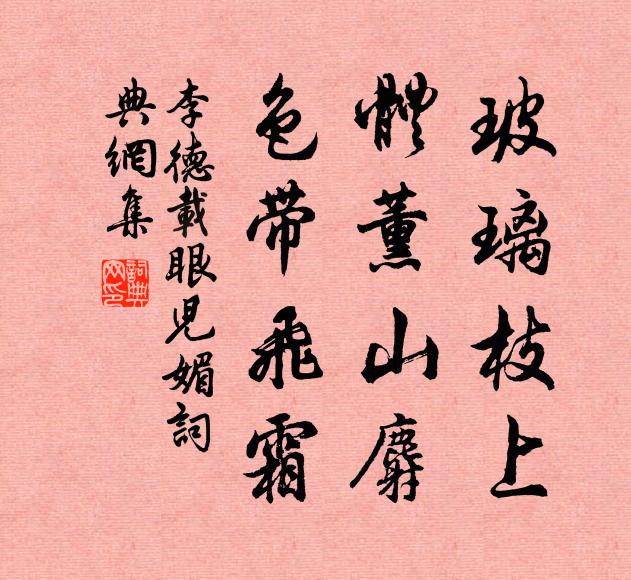 玻璃枝上
體薰山麝
色帶飛霜
李德載眼兒媚詞
典網集
詞典網印